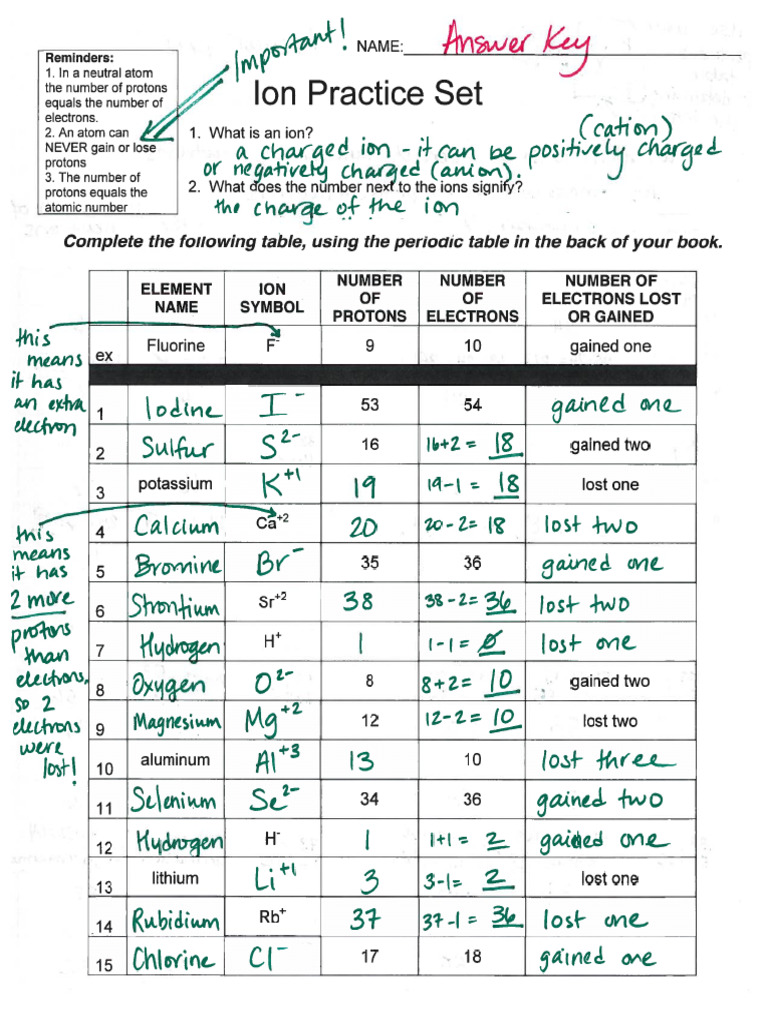 Important!
NAME: Answer Key
Reminders:
1. In a neutral atom
the number of protons
equals the number of
electrons.
2. An atom can
NEVER gain or lose
protons
3. The number of
protons equals the
atomic number
Ion Practice Set
1. What is an ion?
(cation)
a charged ion - it can be positively charged
or negatively charged (anion).
2. What does the number next to the ions signify?
the charge of the ion
Complete the following table, using the periodic table in the back of your book.
ELEMENT NAME ION SYMBOL NUMBER OF PROTONS NUMBER OF ELECTRONS NUMBER OF ELECTRONS LOST OR GAINED
ex Fluorine F⁻ 9 10 gained one
1 Iodine I⁻ 53 54 gained one
2 Sulfur S²⁻ 16 16+2 = 18 gained two
3 potassium K⁺¹ 19 19-1 = 18 lost one
4 Calcium Ca⁺² 20 20-2= 18 lost two
5 Bromine Br⁻ 35 36 gained one
6 Strontium Sr⁺² 38 38-2= 36 lost two
7 Hydrogen H⁺ 1 1-1= 0 lost one
8 Oxygen O²⁻ 8 8+2= 10 gained two
9 Magnesium Mg⁺² 12 12-2= 10 lost two
10 aluminum Al⁺³ 13 10 lost three
11 Selenium Se²⁻ 34 36 gained two
12 Hydrogen H⁻ 1 1+1= 2 gained one
13 lithium Li⁺¹ 3 3-1= 2 lost one
14 Rubidium Rb⁺ 37 37-1= 36 lost one
15 Chlorine Cl⁻ 17 18 gained one
this
means
it has
an extra
electron
this
means
it has
2 more
protons
than
electrons,
so 2
electrons
were
lost!